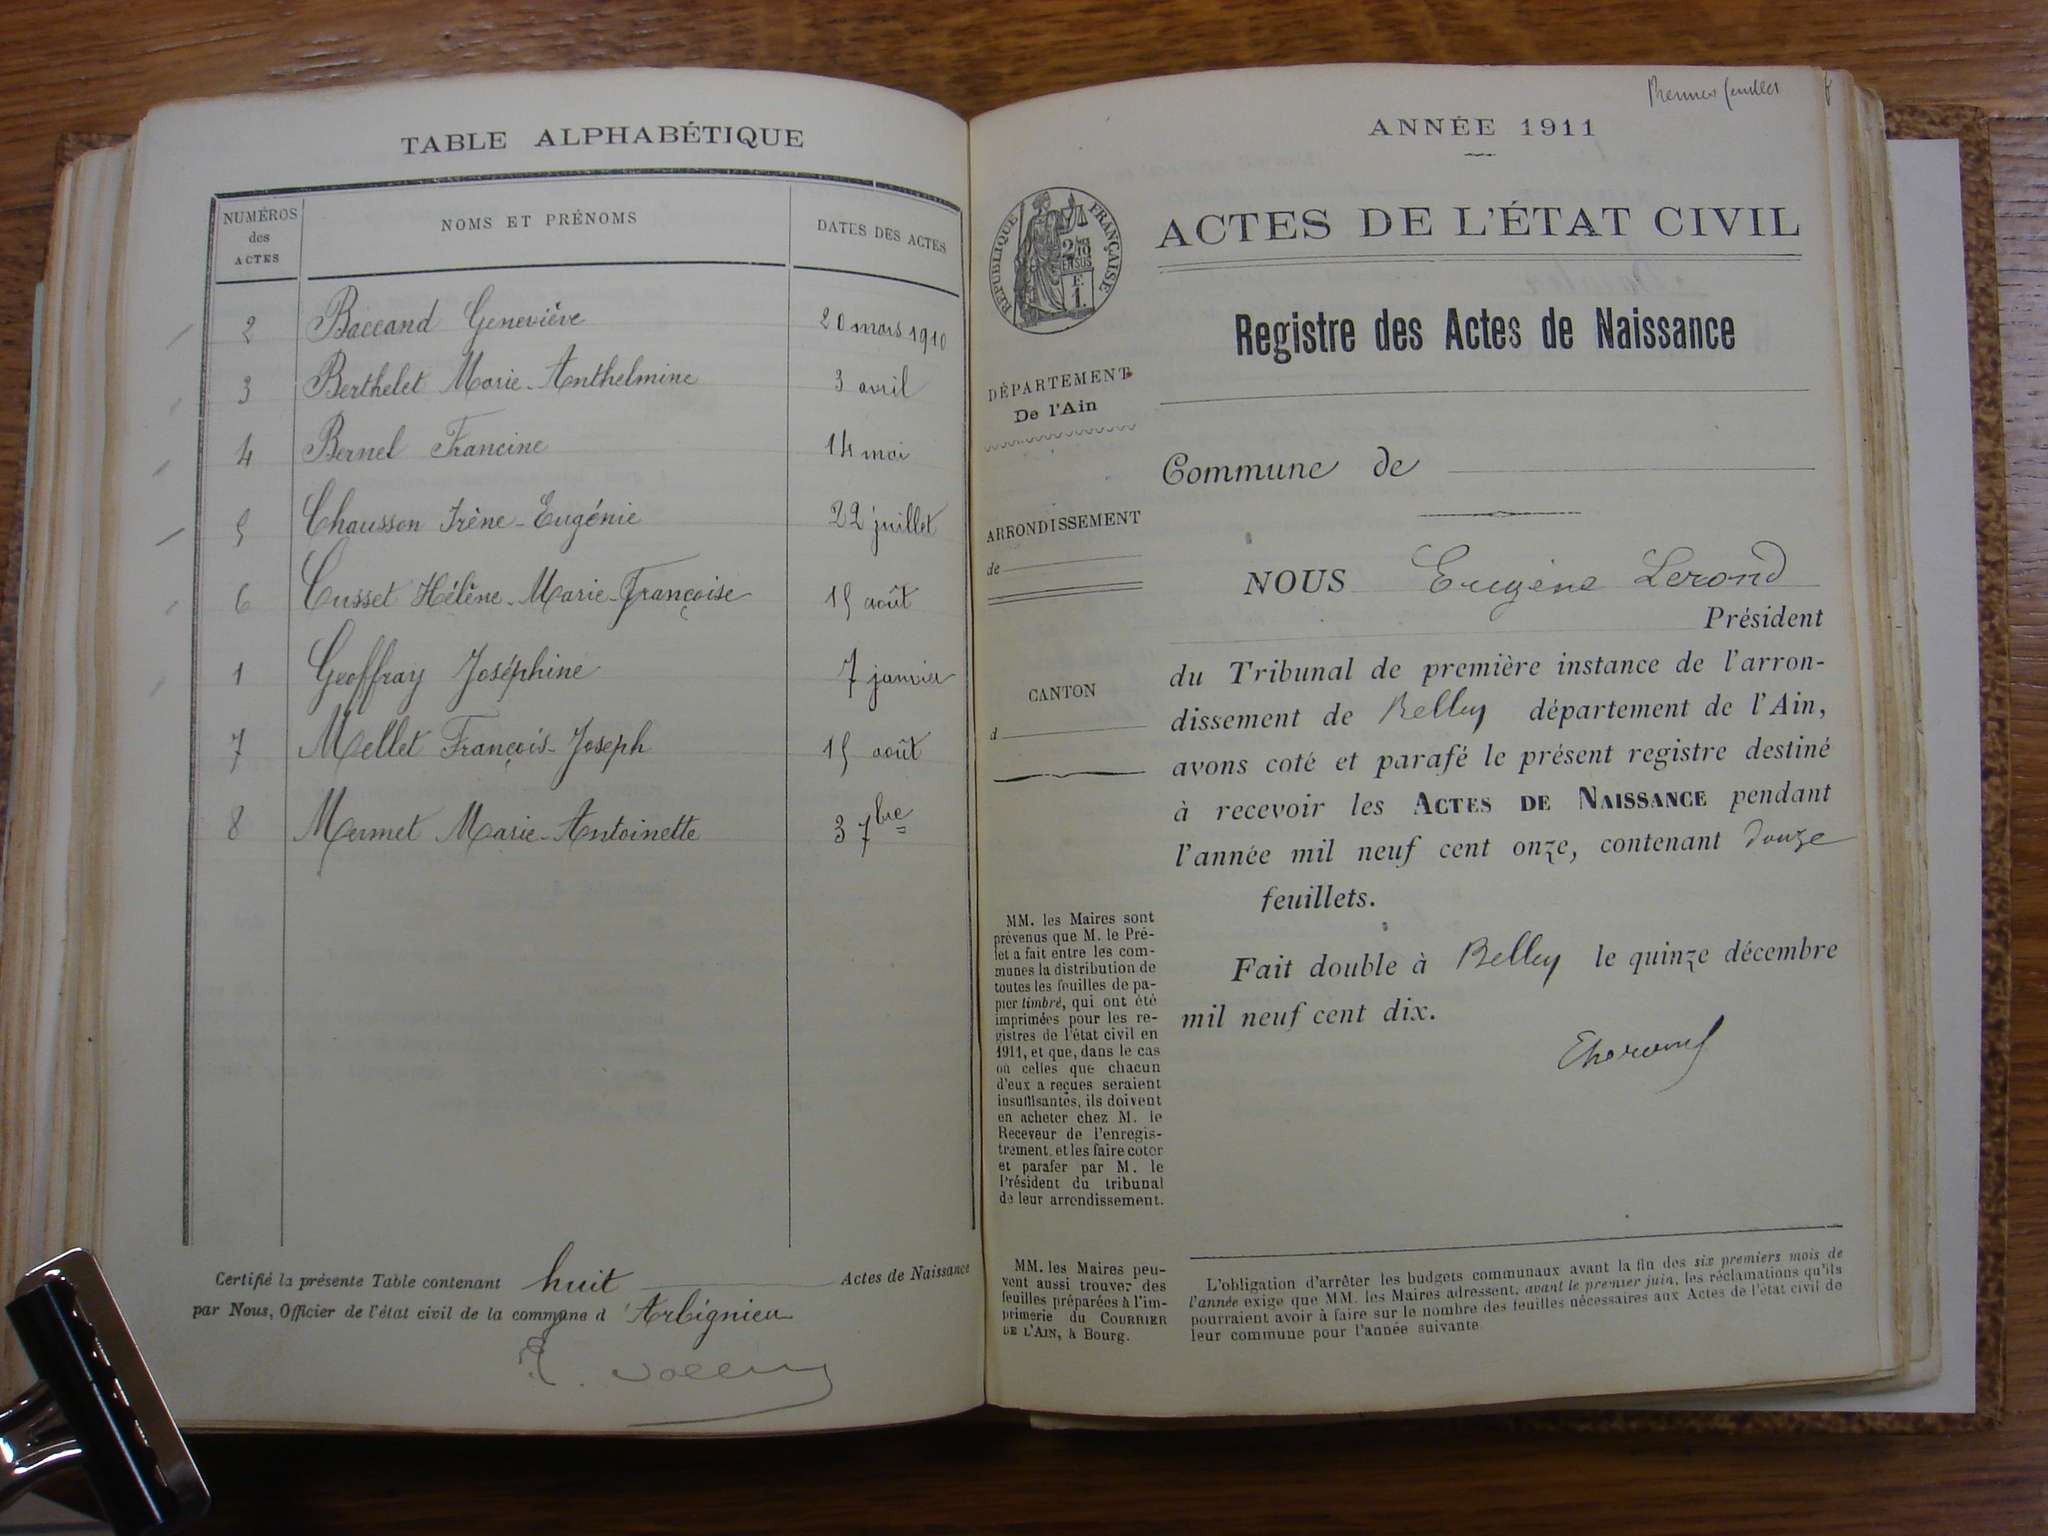 TABLE ALPHABÉTIQUE
NUMÉROS des ACTES NOMS ET PRÉNOMS DATES DES ACTES
2 Baccand Geneviève 20 mars 1910
3 Berthelet Marie-Anthelmine 3 avril
4 Bernel Francine 14 mai
5 Chausson Irène-Eugénie 22 juillet
6 Cusset Hélène-Marie-Françoise 15 août
1 Geoffray Joséphine 7 janvier
7 Mellet François-Joseph 15 août
8 Mermet Marie-Antoinette 3 7bre
Certifié la présente Table contenant huit Actes de Naissance
par Nous, Officier de l'état civil de la commune d'Arbignieu
Premier feuillet
ANNÉE 1911
RÉPUBLIQUE FRANÇAISE
ACTES DE L'ÉTAT CIVIL
Registre des Actes de Naissance
DÉPARTEMENT
De l'Ain
Commune de
ARRONDISSEMENT
de
CANTON
d
NOUS Eugène Lerond
Président
du Tribunal de première instance de l'arron-
dissement de Belley département de l'Ain,
avons coté et parafé le présent registre destiné
à recevoir les ACTES DE NAISSANCE pendant
l'année mil neuf cent onze, contenant douze
feuillets.
Fait double à Belley le quinze décembre
mil neuf cent dix.
MM. les Maires sont
prévenus que M. le Pré-
fet a fait entre les com-
munes la distribution de
toutes les feuilles de pa-
pier timbré, qui ont été
imprimées pour les re-
gistres de l'état civil en
1911, et que, dans le cas
où celles que chacun
d'eux a reçues seraient
insuffisantes, ils doivent
en acheter chez M. le
Receveur de l'enregis-
trement, et les faire coter
et parafer par M. le
Président du tribunal
de leur arrondissement.
MM. les Maires peu-
vent aussi trouver des
feuilles préparées à l'im-
primerie du COURRIER
DE L'AIN, à Bourg.
L'obligation d'arrêter les budgets communaux avant la fin des six premiers mois de
l'année exige que MM. les Maires adressent, avant le premier juin, les réclamations qu'ils
pourraient avoir à faire sur le nombre des feuilles nécessaires aux Actes de l'état civil de
leur commune pour l'année suivante